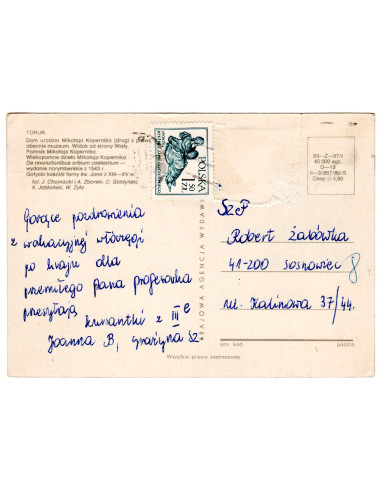 TORUŃ
Dom urodzin Mikołaja Kopernika (drugi z prawej)
obecnie muzeum. Widok od strony Wisły.
Pomnik Mikołaja Kopernika.
Wiekopomne dzieło Mikołaja Kopernika
De revolutionibus orbium coelestium —
wydanie norymberskie z 1543 r.
Gotycki kościół farny św. Jana z XIII—XV w.
fot. J. Chojnacki i A. Zborski, D. Gołdyński,
K. Jabłoński, W. Żyła
POLSKA
1,50 ZŁ
KRAJOWA AGENCJA WYDAW
40 000 egz.
Cena zł 4,50
Gorące pozdrowienia
z wakacyjnej włóczęgi
po kraju dla
przemiłego Pana Profesorka
przesyłają
kumantki z III e
Joanna B, Grażyna Sz
SzP
Robert Żabówka
41-200 Sosnowiec 8
ul. Kalinowa 37/44.
ozn. kod
poczta
Wszelkie prawa zastrzeżone